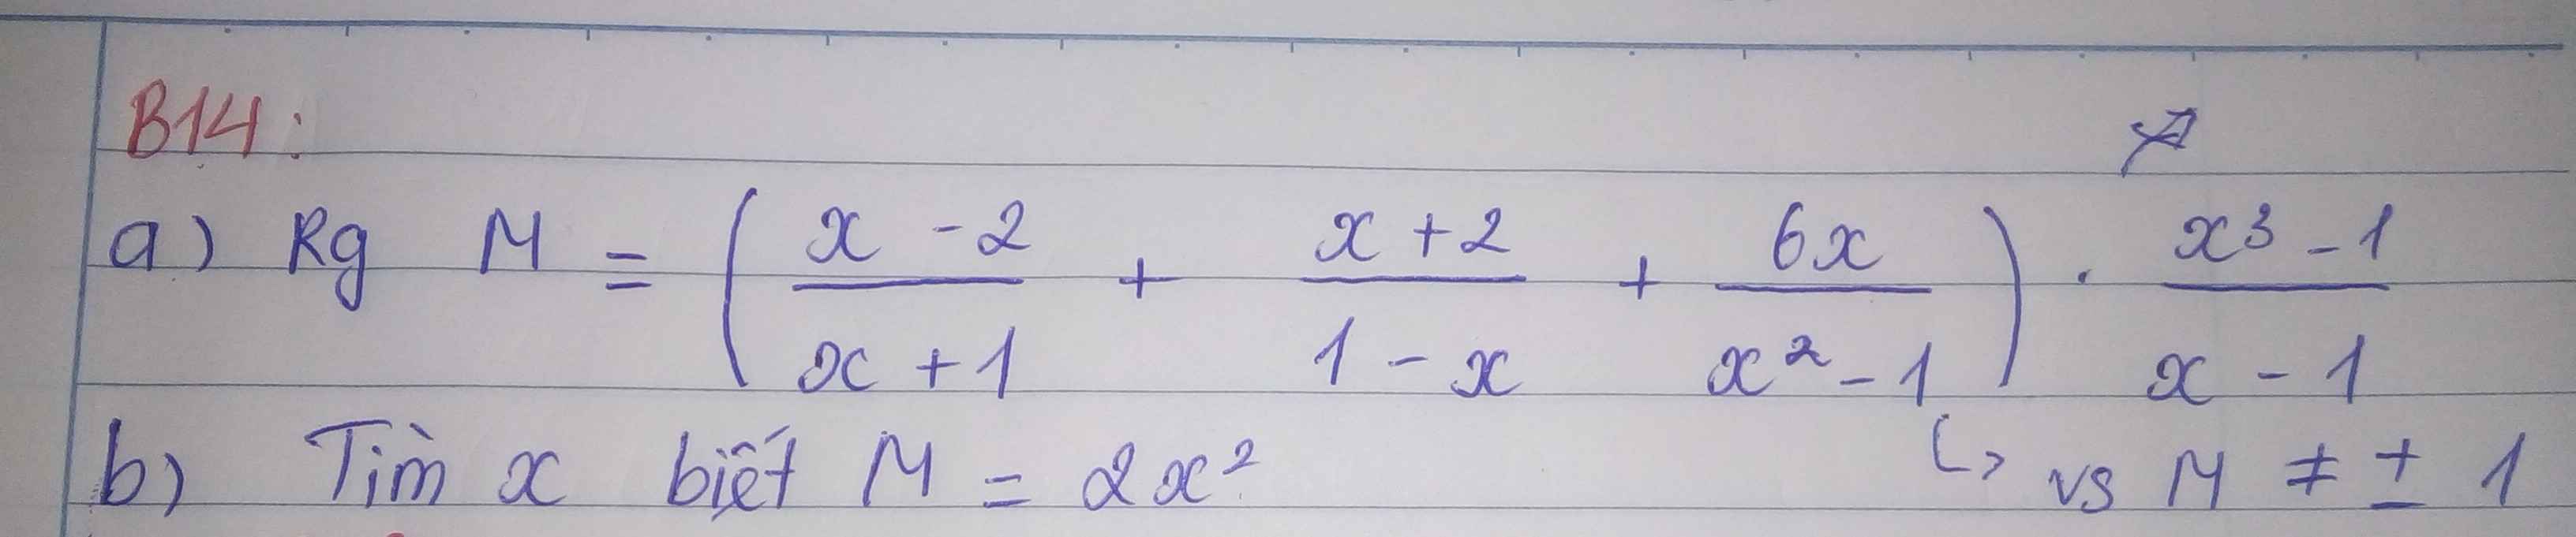 B14:
a) Rg M = ( (x - 2)/(x + 1) + (x + 2)/(1 - x) + 6x/(x² - 1) ) . (x³ - 1)/(x - 1)
↳ vs M ≠ ± 1
b) Tìm x biết M = 2x²